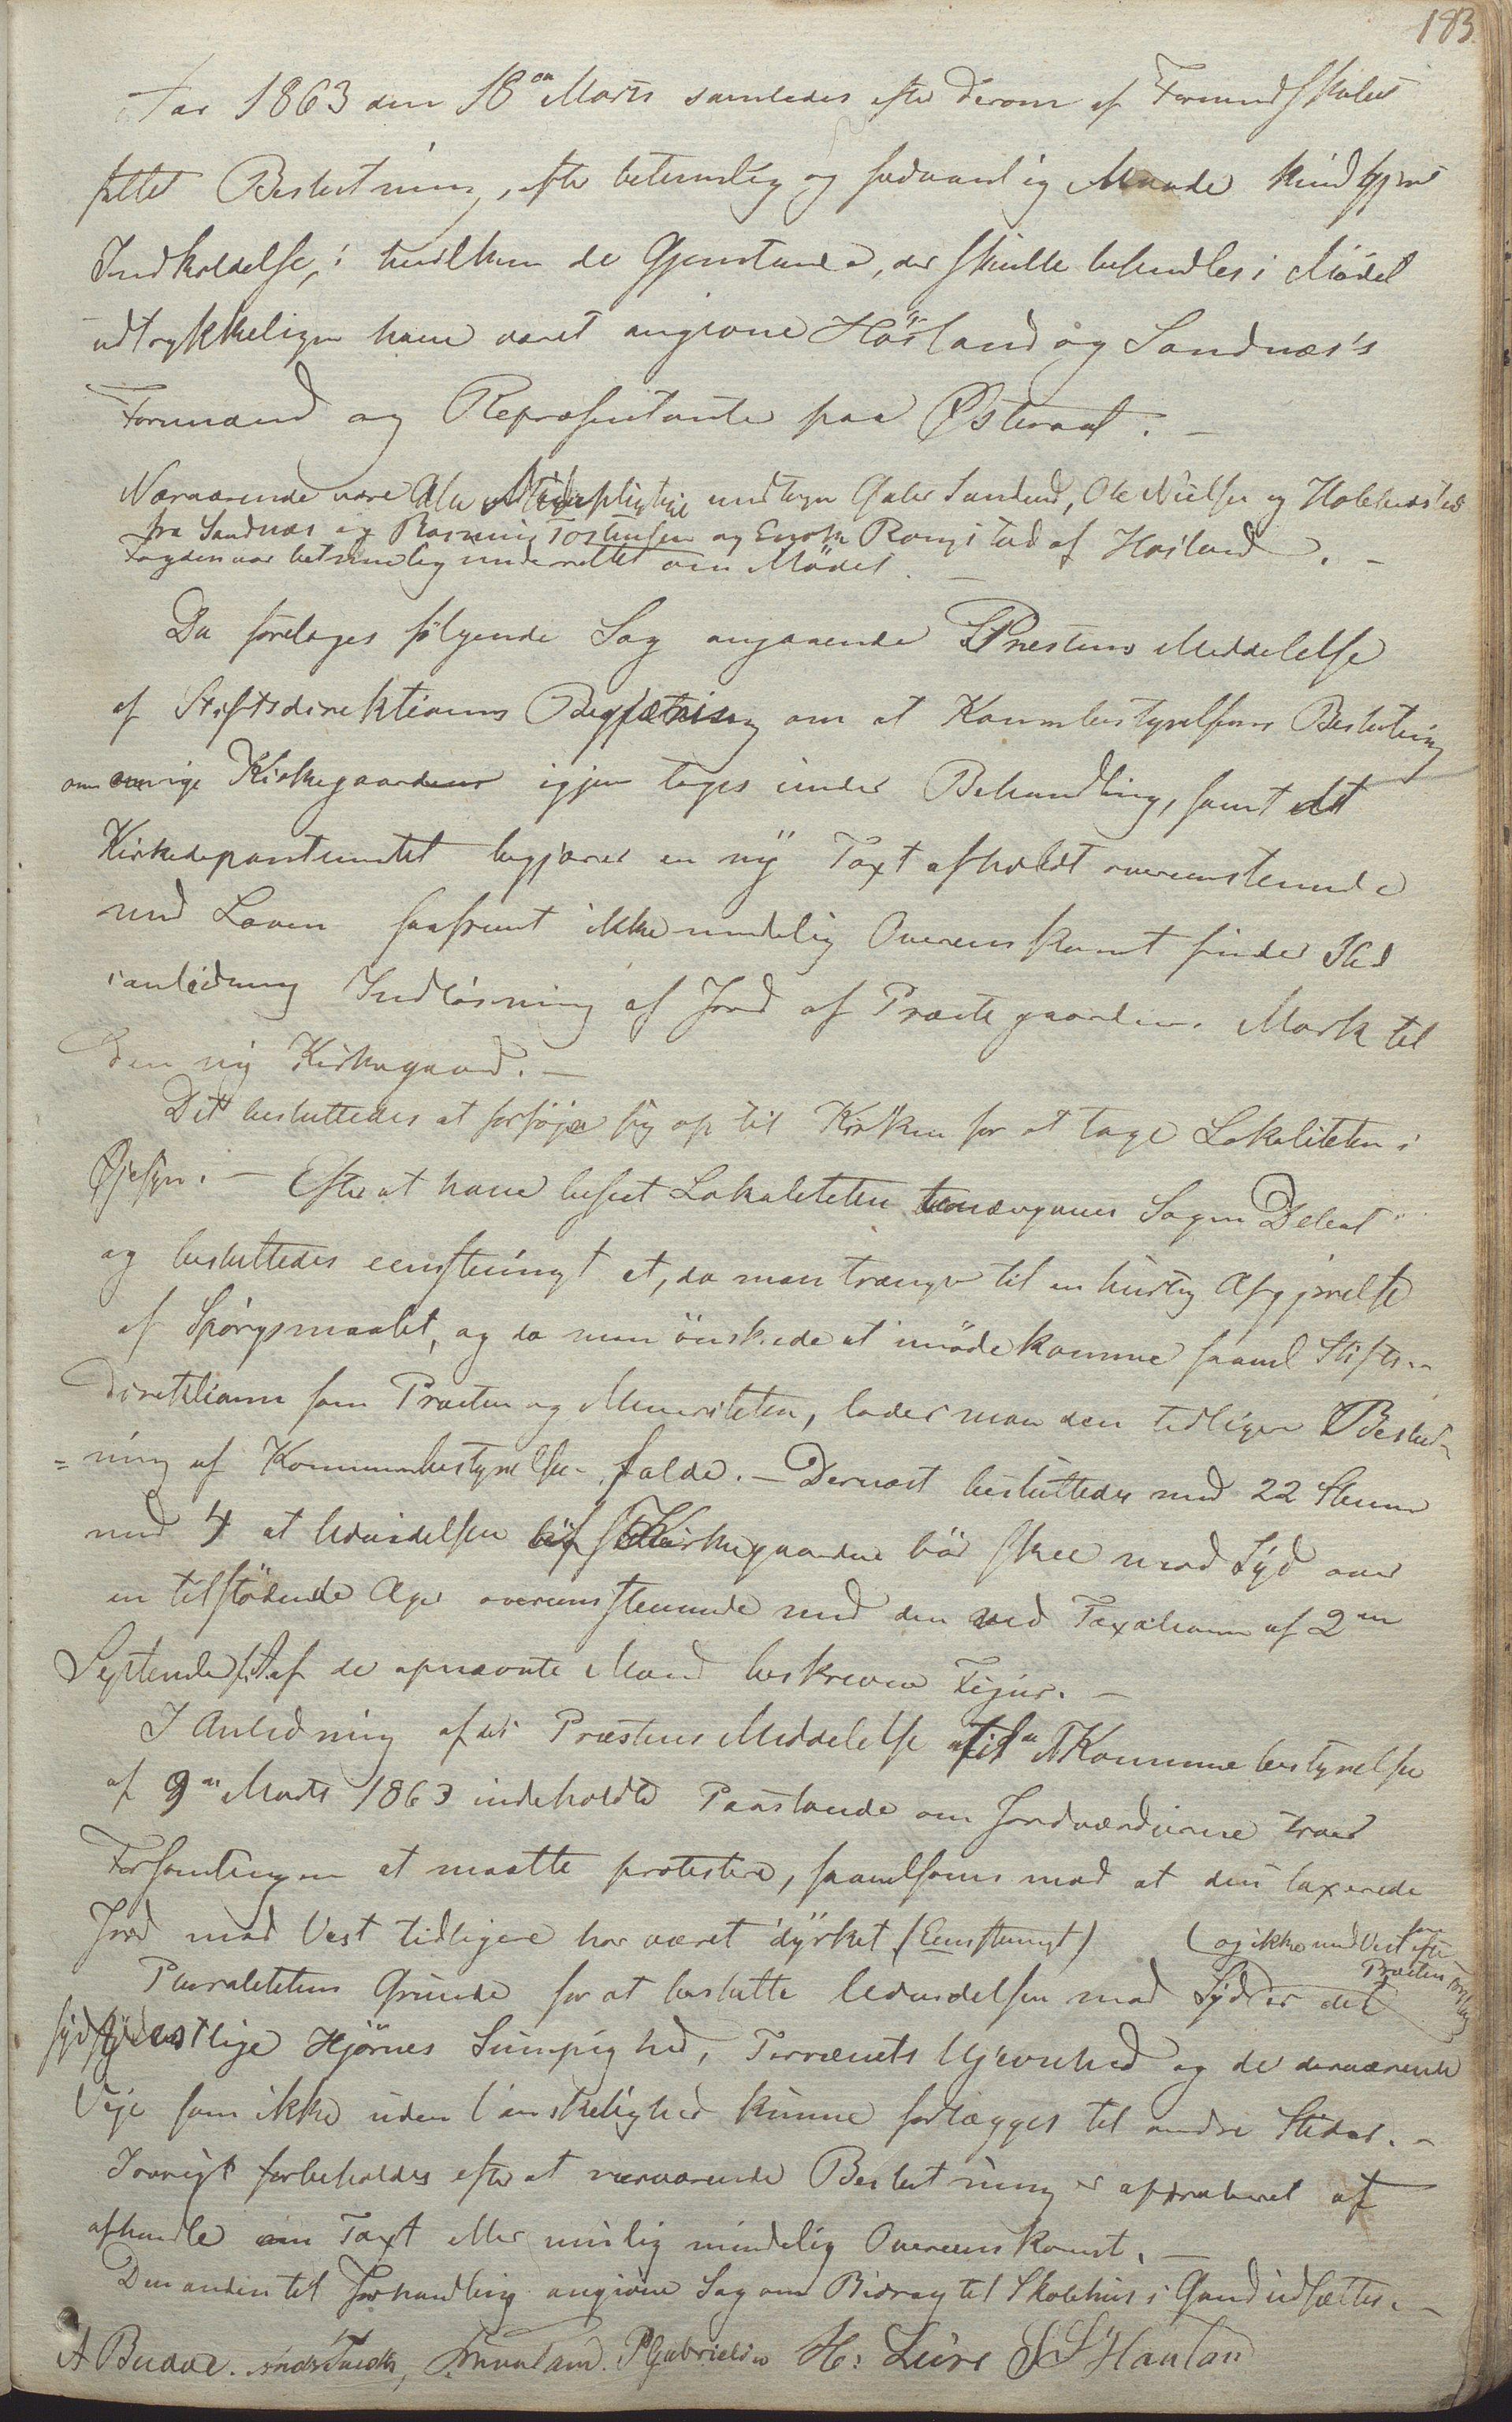 183.
Aar 1863 den 18de Marts samledes efter derom af Formandskabet
fattet Beslutning, efter betimelig og sedvanlig Maade kundgjort
Indkaldelse, i hvilken de Gjenstande, der skulde behandles i Mødet
udtrykkeligen have været angivne Høiland og Sandnæs's
Formænd og Repræsentanter paa Østeraat. –
Nærværende vare Alle Mødepligtige undtagen Gabr Sandved, Ole Nielsen og Holkestad
fra Sandnæs og Rasmus Tostensen og Enok Rongstad af Høiland. –
Fogden var betimelig underrettet om Mødet. –
Da foretoges følgende Sag angaaende Præstens Meddelelse
af Stiftsdirektionens Begjæring om at Kommbestyrelsens Beslutning
om øvrige Kirkegaarden igjen tages under Behandling, samt at
Kirkedepartementet begjærer en ny Taxt afholdt overensstemmende
med Loven saafremt ikke mindelig Overenskomst finder Sted
i anledning Indløsning af Jord af Præstegaardens Mark til
den ny Kirkegaard. –
Det besluttedes at forføje sig op til Kirken for at tage Lokaliteten i
Øjesyn. – Efter at have beseet Lokaliteten Sagen Debat
og besluttedes eenstemmigt at, da man trænger til en hurtig Afgjørelse
af Spørgsmaalet, og da man ønskede at imødekomme saavel Stifts-
direktionen som Præsten og Minoriteten, lader man den tidligere Beslut-
=ning af Kommunebestyrelsen falde. – Dernæst besluttedes med 22 Stemmer
mod 4 at Udvidelsen af Kirkegaarden bør skee mod Syd over
en tilstødende Ager overensstemmende med den ved Taxationen af 2den
September f.A. af de opnævnte Mænd beskrevne Figur. –
I Anledning af det Præstens Meddelelse til Kommunebestyrelsen
af 9de Marts 1863 indeholdte Paastande om Jordværdierne troer
Forsamlingen at maatte protestere, saavelsom mod at den taxerede
Jord mod Vest tidligere har været dyrket (Eenstemmigt)
(og ikke mod Vest som efter Præsten
Pluralitetens Grunde for at beslutte Udvidelsen mod Syd er det
sydvestlige Hjørnes Sumpighed, Terrænets Ujevnhed og de derværende
Veje som ikke uden Vanskelighed kunne forlægges til andre Steder. –
Iøvrigt forbeholdes efter at nærværende Beslutning er approberet at
afhandle om Taxt eller muelig mindelig Overenskomst. –
Den anden til Forhandling angivne Sag om Bidrag til Skolehus i Gand udsættes. –
A Buaae. P Gabrielsen H: Lura